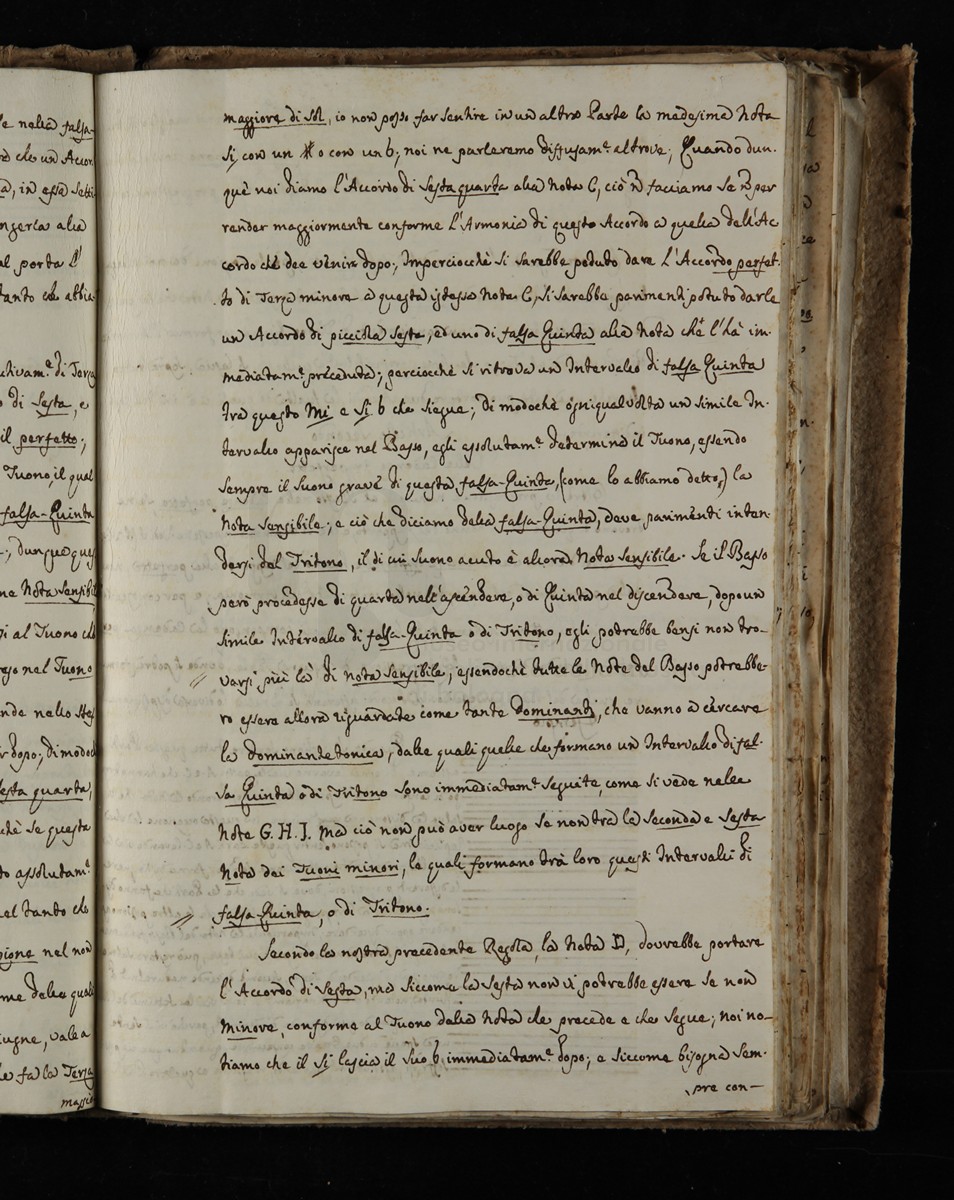 e nella falsa
che un Accor
in essa setti
ngerla alla
al porta l'
tanto che abbia
di Terza
di Sesta, e
il perfetto;
Tuono, il qual
falsa-Quinta
dunque ques
Nota sensib
al Tuono che
nel Tuono
nella stes
dopo; di modoch
sesta quarta,
chè se questa
assolutam.e
el tanto che
gione nel non
me della qual
vale a
fa la Terza
maggio
maggiore di Sol, io non posso far sentire in un altra Parte la medesima Nota
Si, con un ♯ o con un b; noi ne parleremo diffusam.e altrove; Quando dun-
què noi diamo l'Accordo di Sesta quarta alla Nota C, ciò ñ facciamo se ñ per
render maggiormente conforme l'Armonia di questo Accordo a quella dell'Ac
cordo chè dee venir dopo; Imperciocchè si sarebbe potuto dare l'Accordo perfet-
to di Terza minore a questa istessa Nota C, si sarebbe parimenti potuto darle
un Accordo di picciola Sesta, ed uno di falsa Quinta alla Nota chè l'hà im-
mediatam.e preceduta; perciocchè si ritrova un Intervallo di falsa Quinta
trà questo Mi e Si b che siegue; di modochè ogniqualvolta un simile In-
tervallo apparisce nel Basso, egli assolutam.e determina il Tuono, essendo
sempre il Suono grave di questa falsa-Quinta, (come lo abbiamo detto,) la
Nota sensibile; e ciò che diciamo della falsa-Quinta, deve parimenti inten-
dersi del Tritono, il di cui Suono acuto è allora Nota Sensibile. Se il Basso
però procedesse di quarta nell'ascendere, o di Quinta nel discendere, dopo un
simile Intervallo di falsa-Quinta o di Tritono, egli potrebbe bensi non tro-
varsi più là di nota sensibile, essendochè tutte le Note del Basso potrebbe-
ro essere allora riguardate come tante Dominanti, che vanno a cercare
la dominante tonica, dalle quali quelle che formano un Intervallo di fal-
sa Quinta o di Tritono sono immediatam.e seguite, come si vede nelle
Note G. H. J. ma ciò non può aver luogo se non trà la seconda e Sesta
Nota dei Tuoni minori, le quali formano trà loro questi Intervalli di
falsa-Quinta, o di Tritono.
Secondo la nostra precedente Regola, la Nota D, dovrebbe portare
l'Accordo di Sesta, ma siccome la Sesta non vi potrebbe essere se non
Minore, conforme al Tuono della Nota che precede e che segue; noi no-
tiamo che il Si lascia il suo b immediatam.e dopo; e siccome bisogna sem-
pre con-